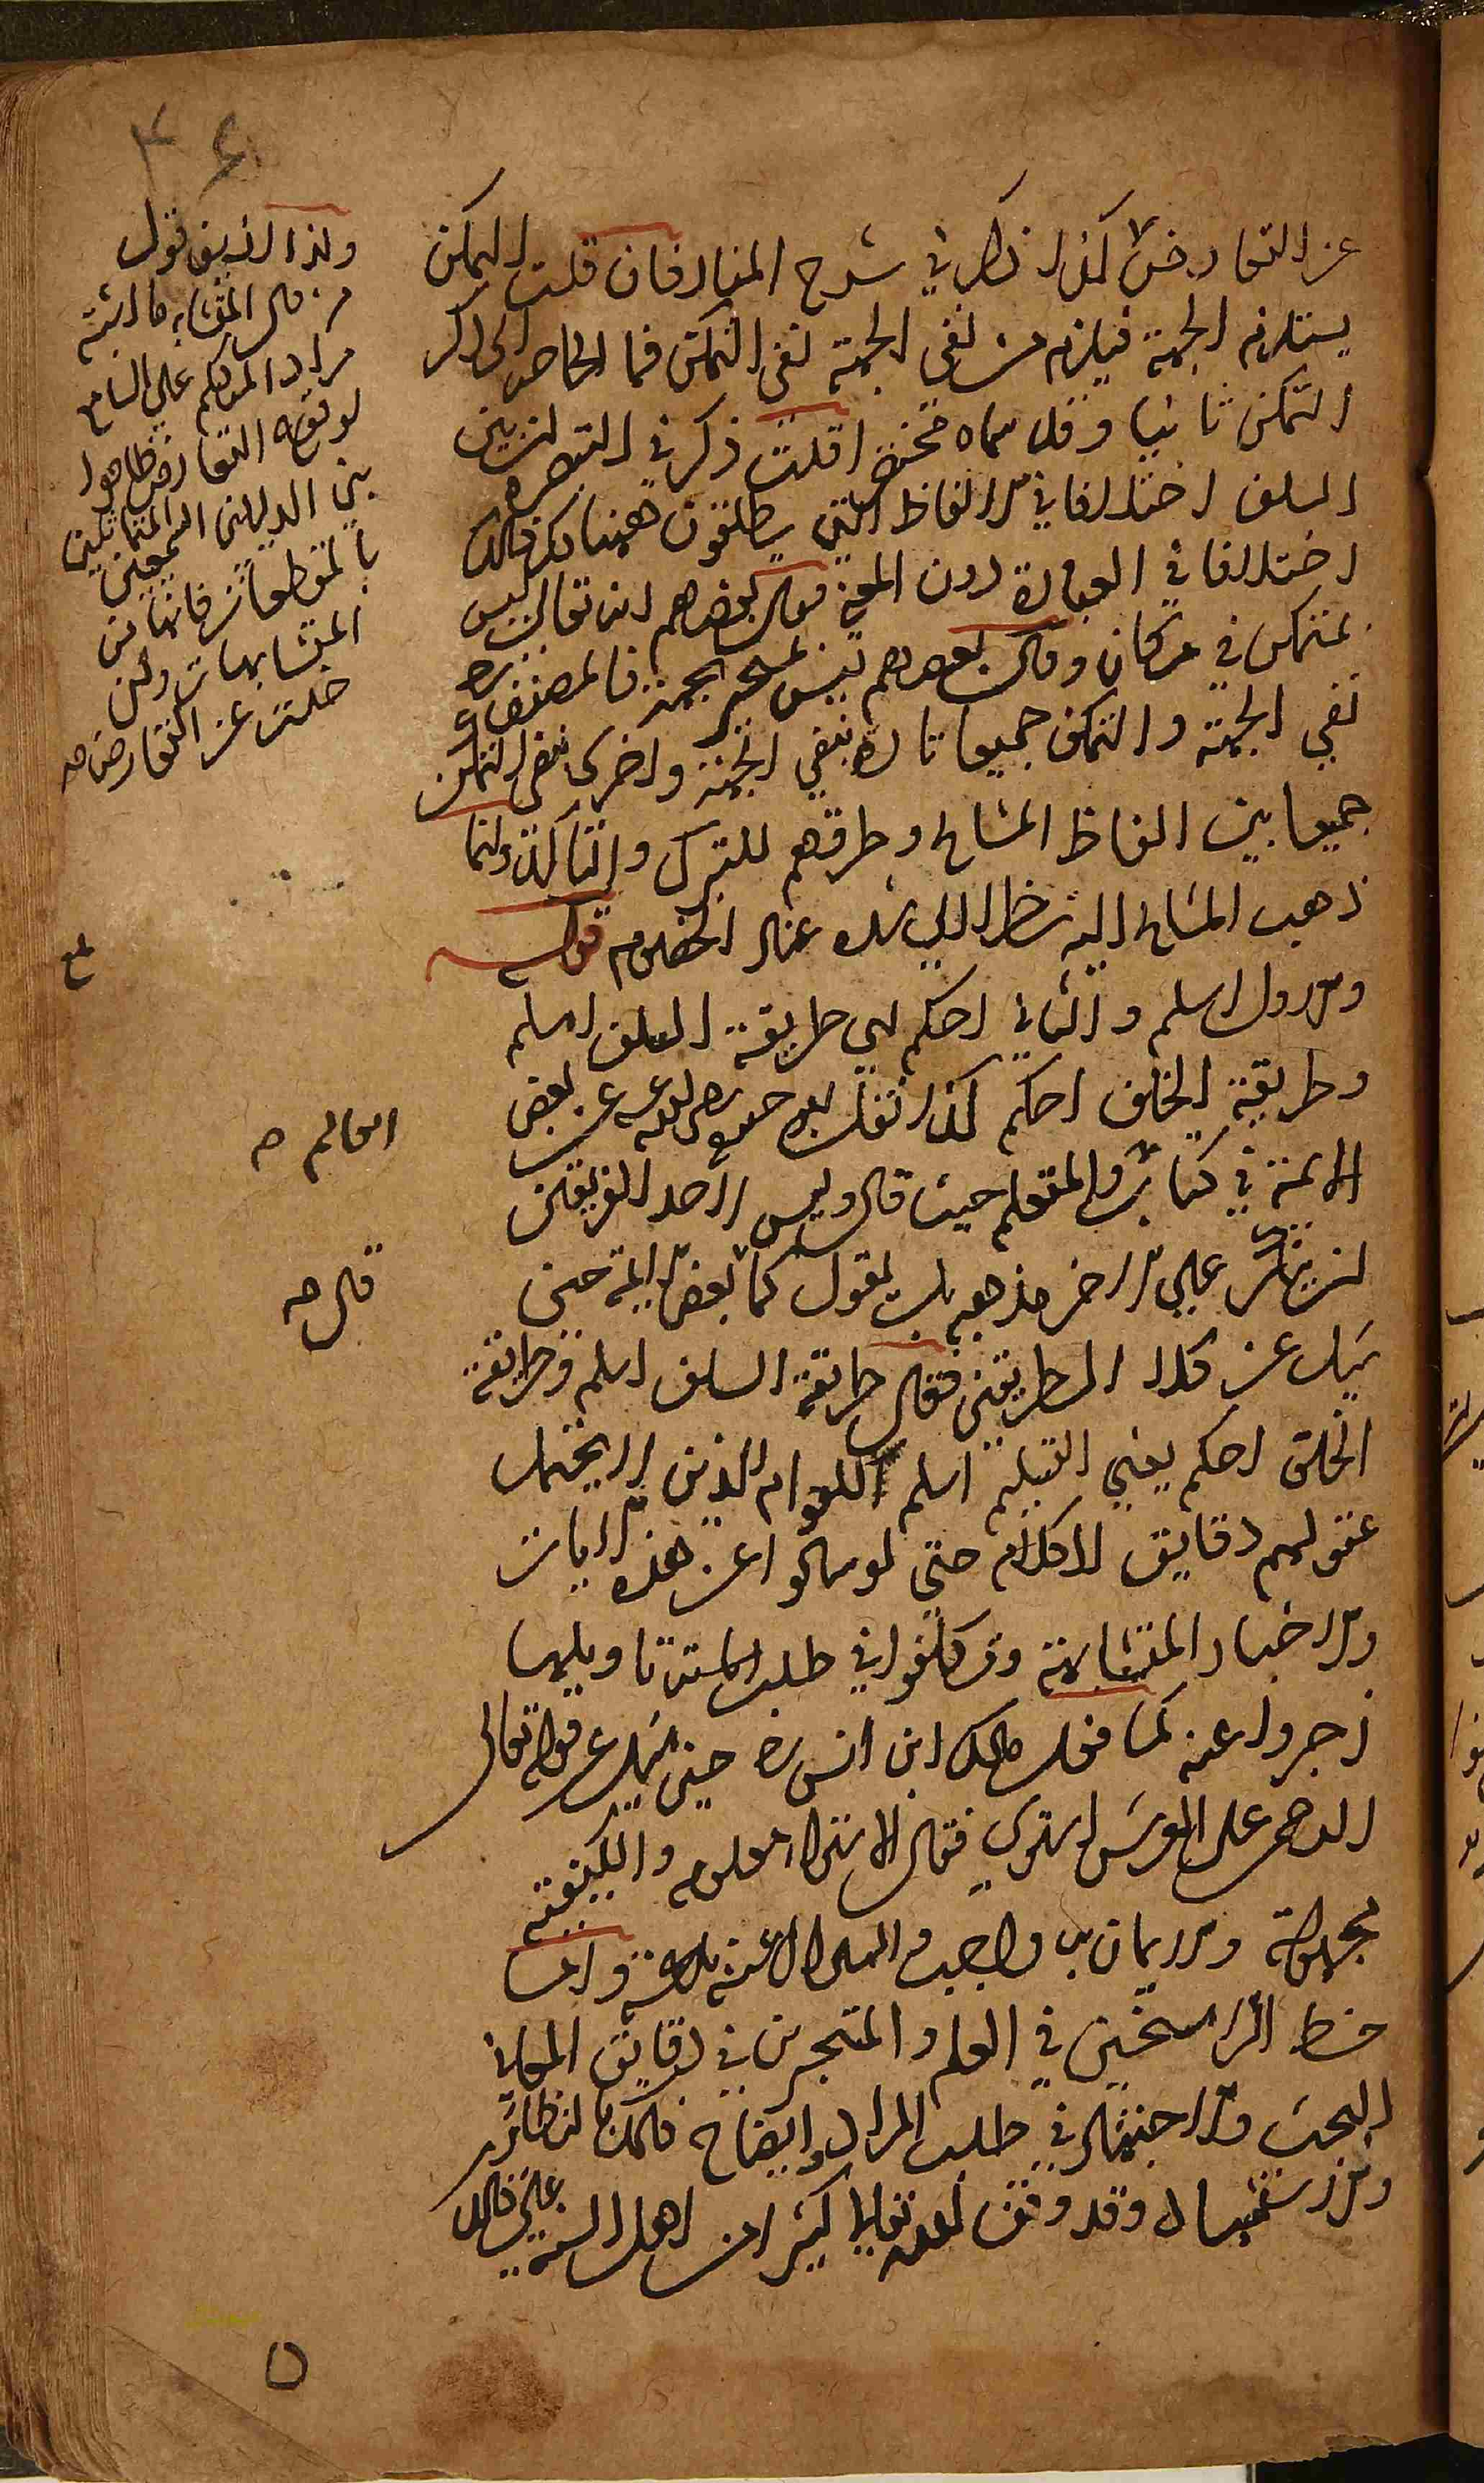 عن التعارض كذا ذكر في شرح المنار فان قلت التمكن
يستلزم الجهة فيلزم من نفي الجهة نفي التمكن فما الحاجة الى ذكر
التمكن ثانيا وقد سماه مختصرا قلت ذكر في التبصرة ان بين
السلف اختلافا في الالفاظ التي يطلقون ههنا لكن ذلك
اختلاف في العبارة دون المعنى قال بعضهم انه تعالى ليس
بمتمكن في مكان وقال بعضهم ليس بجهة فالمصنف
نفي الجهة والتمكن جميعا تارة بنفي الجهة واخرى بنفي التمكن
جمعا بين الفاظ المشايخ وطرقهم للتبرك والتاكيد وانما
ذهب المشايخ اليه نظرا الى عند الخصوم قوله
والاول اسلم والثاني احكم اي طريقة السلف اسلم
وطريقة الخلف احكم كذا نقل عن بعض
الائمة في كتاب والمتعلم حيث قال وليس لاحد الفريقين
ان ينكر على الاخر مذهبه بل نقول كما بعض الائمة حين
سئل عن كلا الطريقين فقال طريقة السلف اسلم وطريقة
الخلف احكم يعني التسليم اسلم للعوام الذين لا يحتمل
عقولهم دقايق الكلام حتى لو سالوا عن هذه الايات
والاخبار المتشابهة وتكلفوا في طلب تاويلها
زجروا عنه كما فعل مالك ابن انس رض حين سئل عن قوله تعالى
الرحمن على العرش استوى فقال الاستواء معلوم والكيفية
مجهولة والايمان به واجب والسؤال عنه بدعة واما
حظ الراسخين في العلم والمتبحرين في دقايق المعاني
البحث والاجتهاد في طلب المراد وايضاح ذلك بالنظاير
والاستشهاد وقد وفق الله تعالى كثيرا من اهل السنة على ذلك
ولذا الايق قول
من قال المتشابه ما اشتبه
مراد المتكلم على السامع
لوقوع التعارض ظاهرا
بين الدليلين السمعيين المتماثلين
بالمقطعات فانها من
المتشابهات وان
خلت عن التعارض صح
العالم صح
قال صح